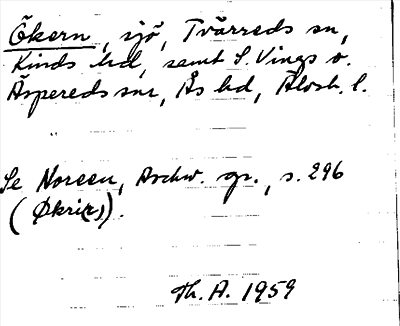 Ökern, sjö, Tvärreds sn,
Kinds hd, samt S. Vings o.
Äspereds snr, Ås hd, Älvsb. l.
Se Noreen, Ärchv. gr., s. 296
(Økri(r)).
Th. A. 1959